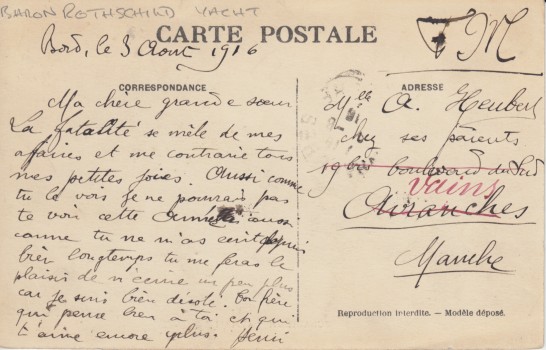 BARON ROTHSCHILD YACHT
Bord, le 3 Aout 1916
CARTE POSTALE
T. M
CORRESPONDANCE
ADRESSE
Ma chère grande sœur
La fatalité se mèle de mes
affaires et me contrarie tous
mes petites joies. Aussi comme
tu le vois je ne pourrais pas
te voir cette année aussi
comme tu ne m'as écrit depuis
bien longtemps tu me feras le
plaisir de m'écrire un peu plus
car je suis bien désolé. Ton frère
qui pense bien à toi et qui
t'aime encore plus. Henri
Melle A. Heubert
chez ses parents
boulevard du Sud
Vains
Avranches
Manche
Reproduction interdite. — Modèle déposé.